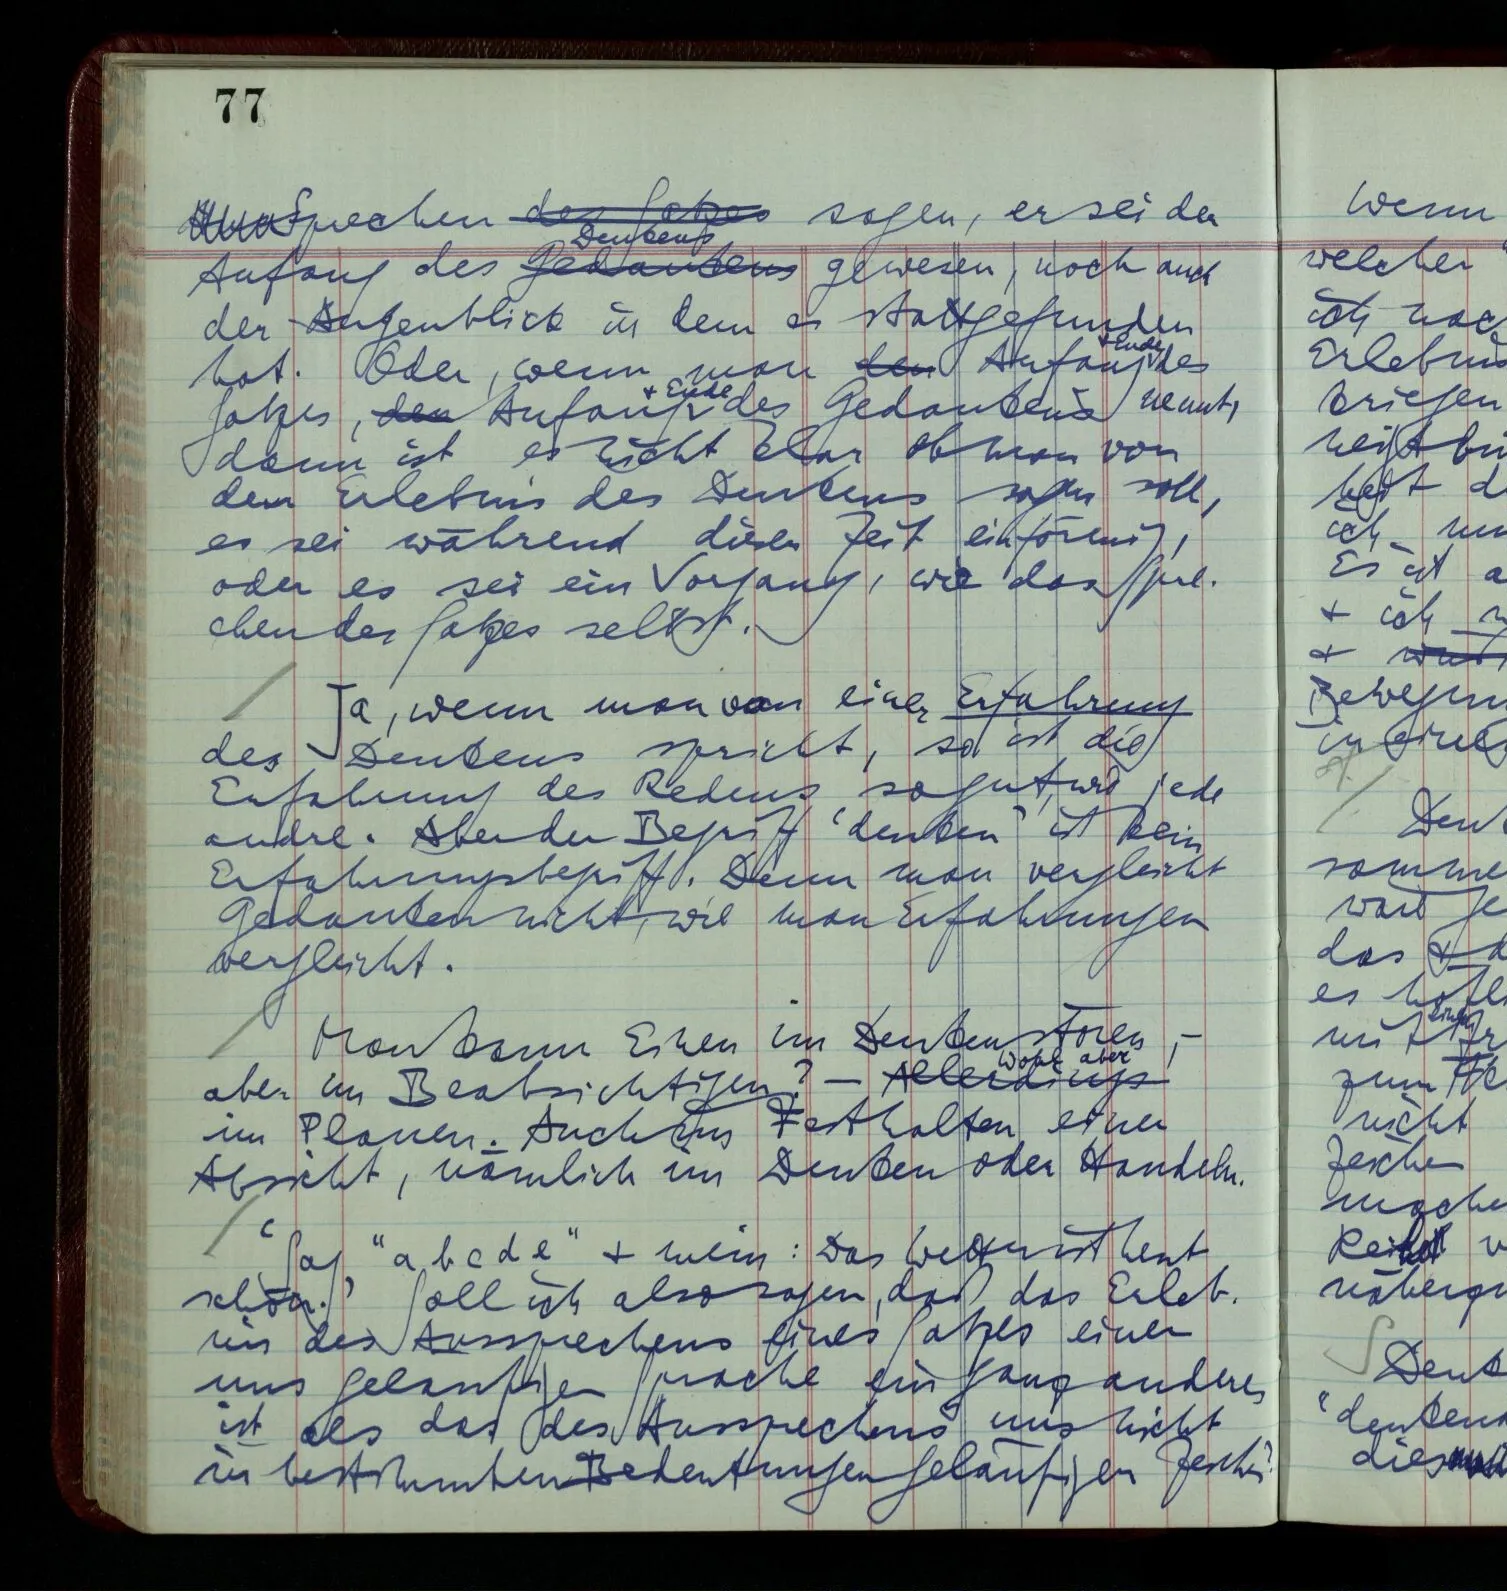 77
Sprechen des Satzes sagen, er sei der
Denkens
Anfang des Gedankens gewesen, noch auch
der Augenblick in dem er stattgefunden
hat. Oder, wenn man den Anfang + Ende des
Satzes, den Anfang + Ende des Gedankens nennt,
dann ist es nicht klar ob man von
dem Erlebnis des Denkens sagen soll,
es sei während dieser Zeit einförmig,
oder es sei ein Vorgang, wie das Spre-
chen des Satzes selbst.
/ Ja, wenn man von einer Erfahrung
des Denkens spricht, so ist die
Erfahrung des Redens so gut, wie jede
andre. Aber der Begriff ‘denken’ ist kein
Erfahrungsbegriff. Denn man vergleicht
Gedanken nicht, wie man Erfahrungen
vergleicht.
/ Man kann Einen im Denken stören, –
aber im Beabsichtigen? – Allerdings Wohl aber
im Planen. Auch im Festhalten einer
Absicht, nämlich im Denken oder Handeln.
/ ‘Sag “a b c d e” + mein: Das Wetter ist heut
schön.’ Soll ich also sagen, daß das Erleb-
nis des Aussprechens eines Satzes einer
uns geläufigen Sprache ein ganz anderes
ist als das des Aussprechens uns nicht
in bestimmten Bedeutungen geläufiger Zeichen?
Wenn
welcher
ich
Erlebnis
kriegen
ich
Es ist
+ ich
+
in
/
das + d
es
mit
zum
nicht
Zeichen